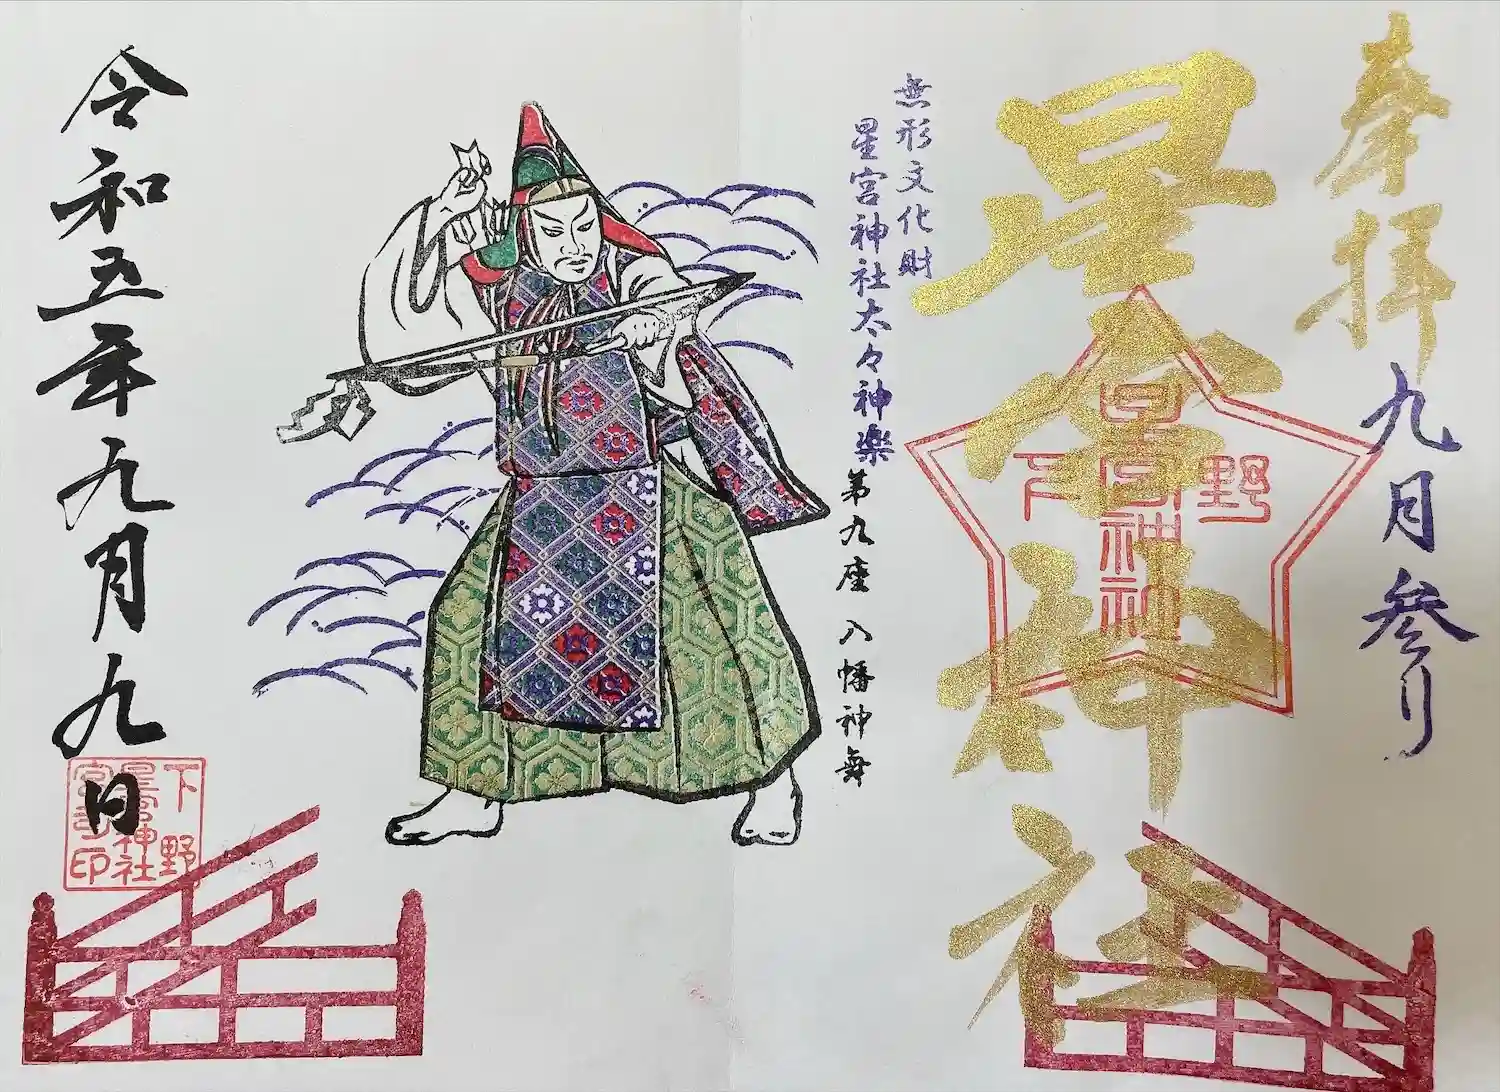 奉拝
九月参り
星宮神社
下野
星宮神社
無形文化財
星宮神社太々神楽
第九座 八幡神舞
令和五年九月九日
下野
星宮神社
宮司印